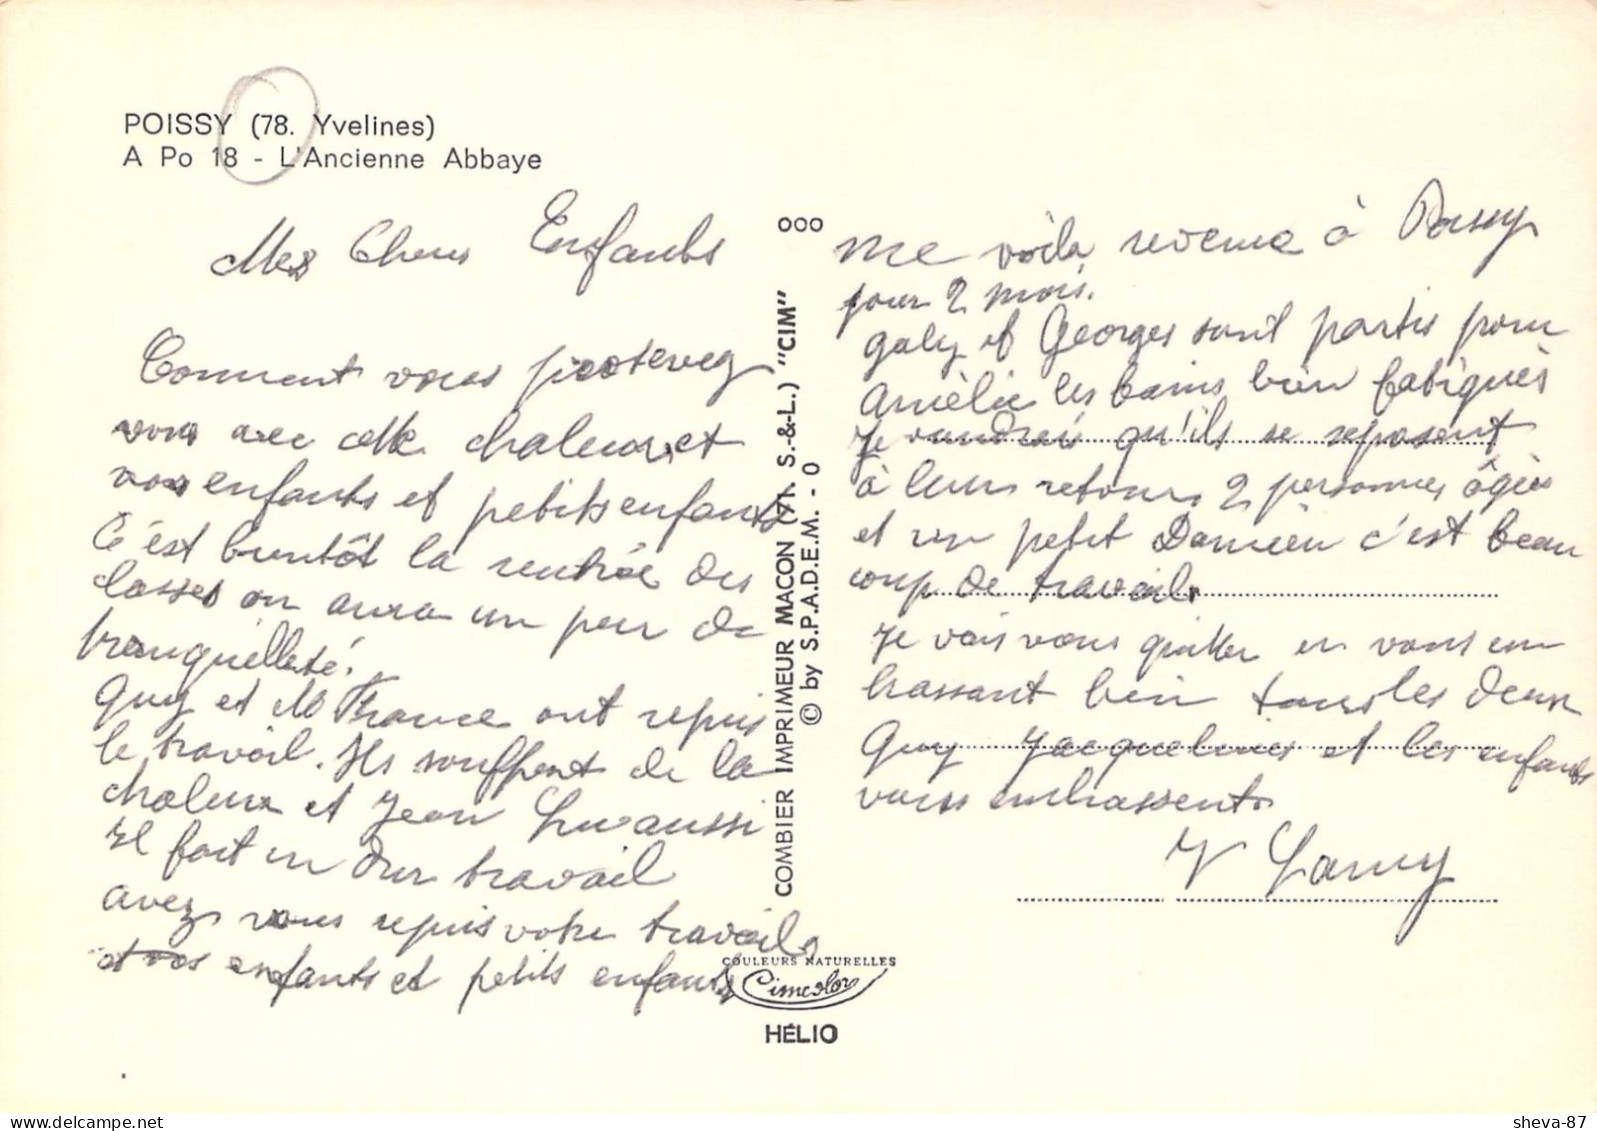 POISSY (78. Yvelines)
A Po 18 - L'Ancienne Abbaye
Mes Chers Enfants
Comment vous
vous avec cette chaleur, et
vos enfants et petits enfants
C'est bientôt la rentrée des
classes on aura un peu de
tranquilleté.
Guy et M France ont repris
le travail. Ils souffrent de la
chaleur et Jean Luc aussi
Il fait un dur travail
avez vous repris votre travail
et vos enfants et petits enfants
ooo
COMBIER IMPRIMEUR MACON (71. S.-&-L.) "CIM"
© by S.P.A.D.E.M. - 0
COULEURS NATURELLES
Cimcolor
HÉLIO
me voila revenue à Poissy
pour 2 mois.
Gaby et Georges sont partis pour
Amélie les bains bien fatiguès
Je voudrais qu'ils se reposent
à leur retour 2 personnes âgées
et un petit Damien c'est beau
coup de travail
Je vais vous quitter en vous em
brassant bien tous les deux
Guy Jacqueline et les enfants
vous embrassent
Lamy
sheva-87